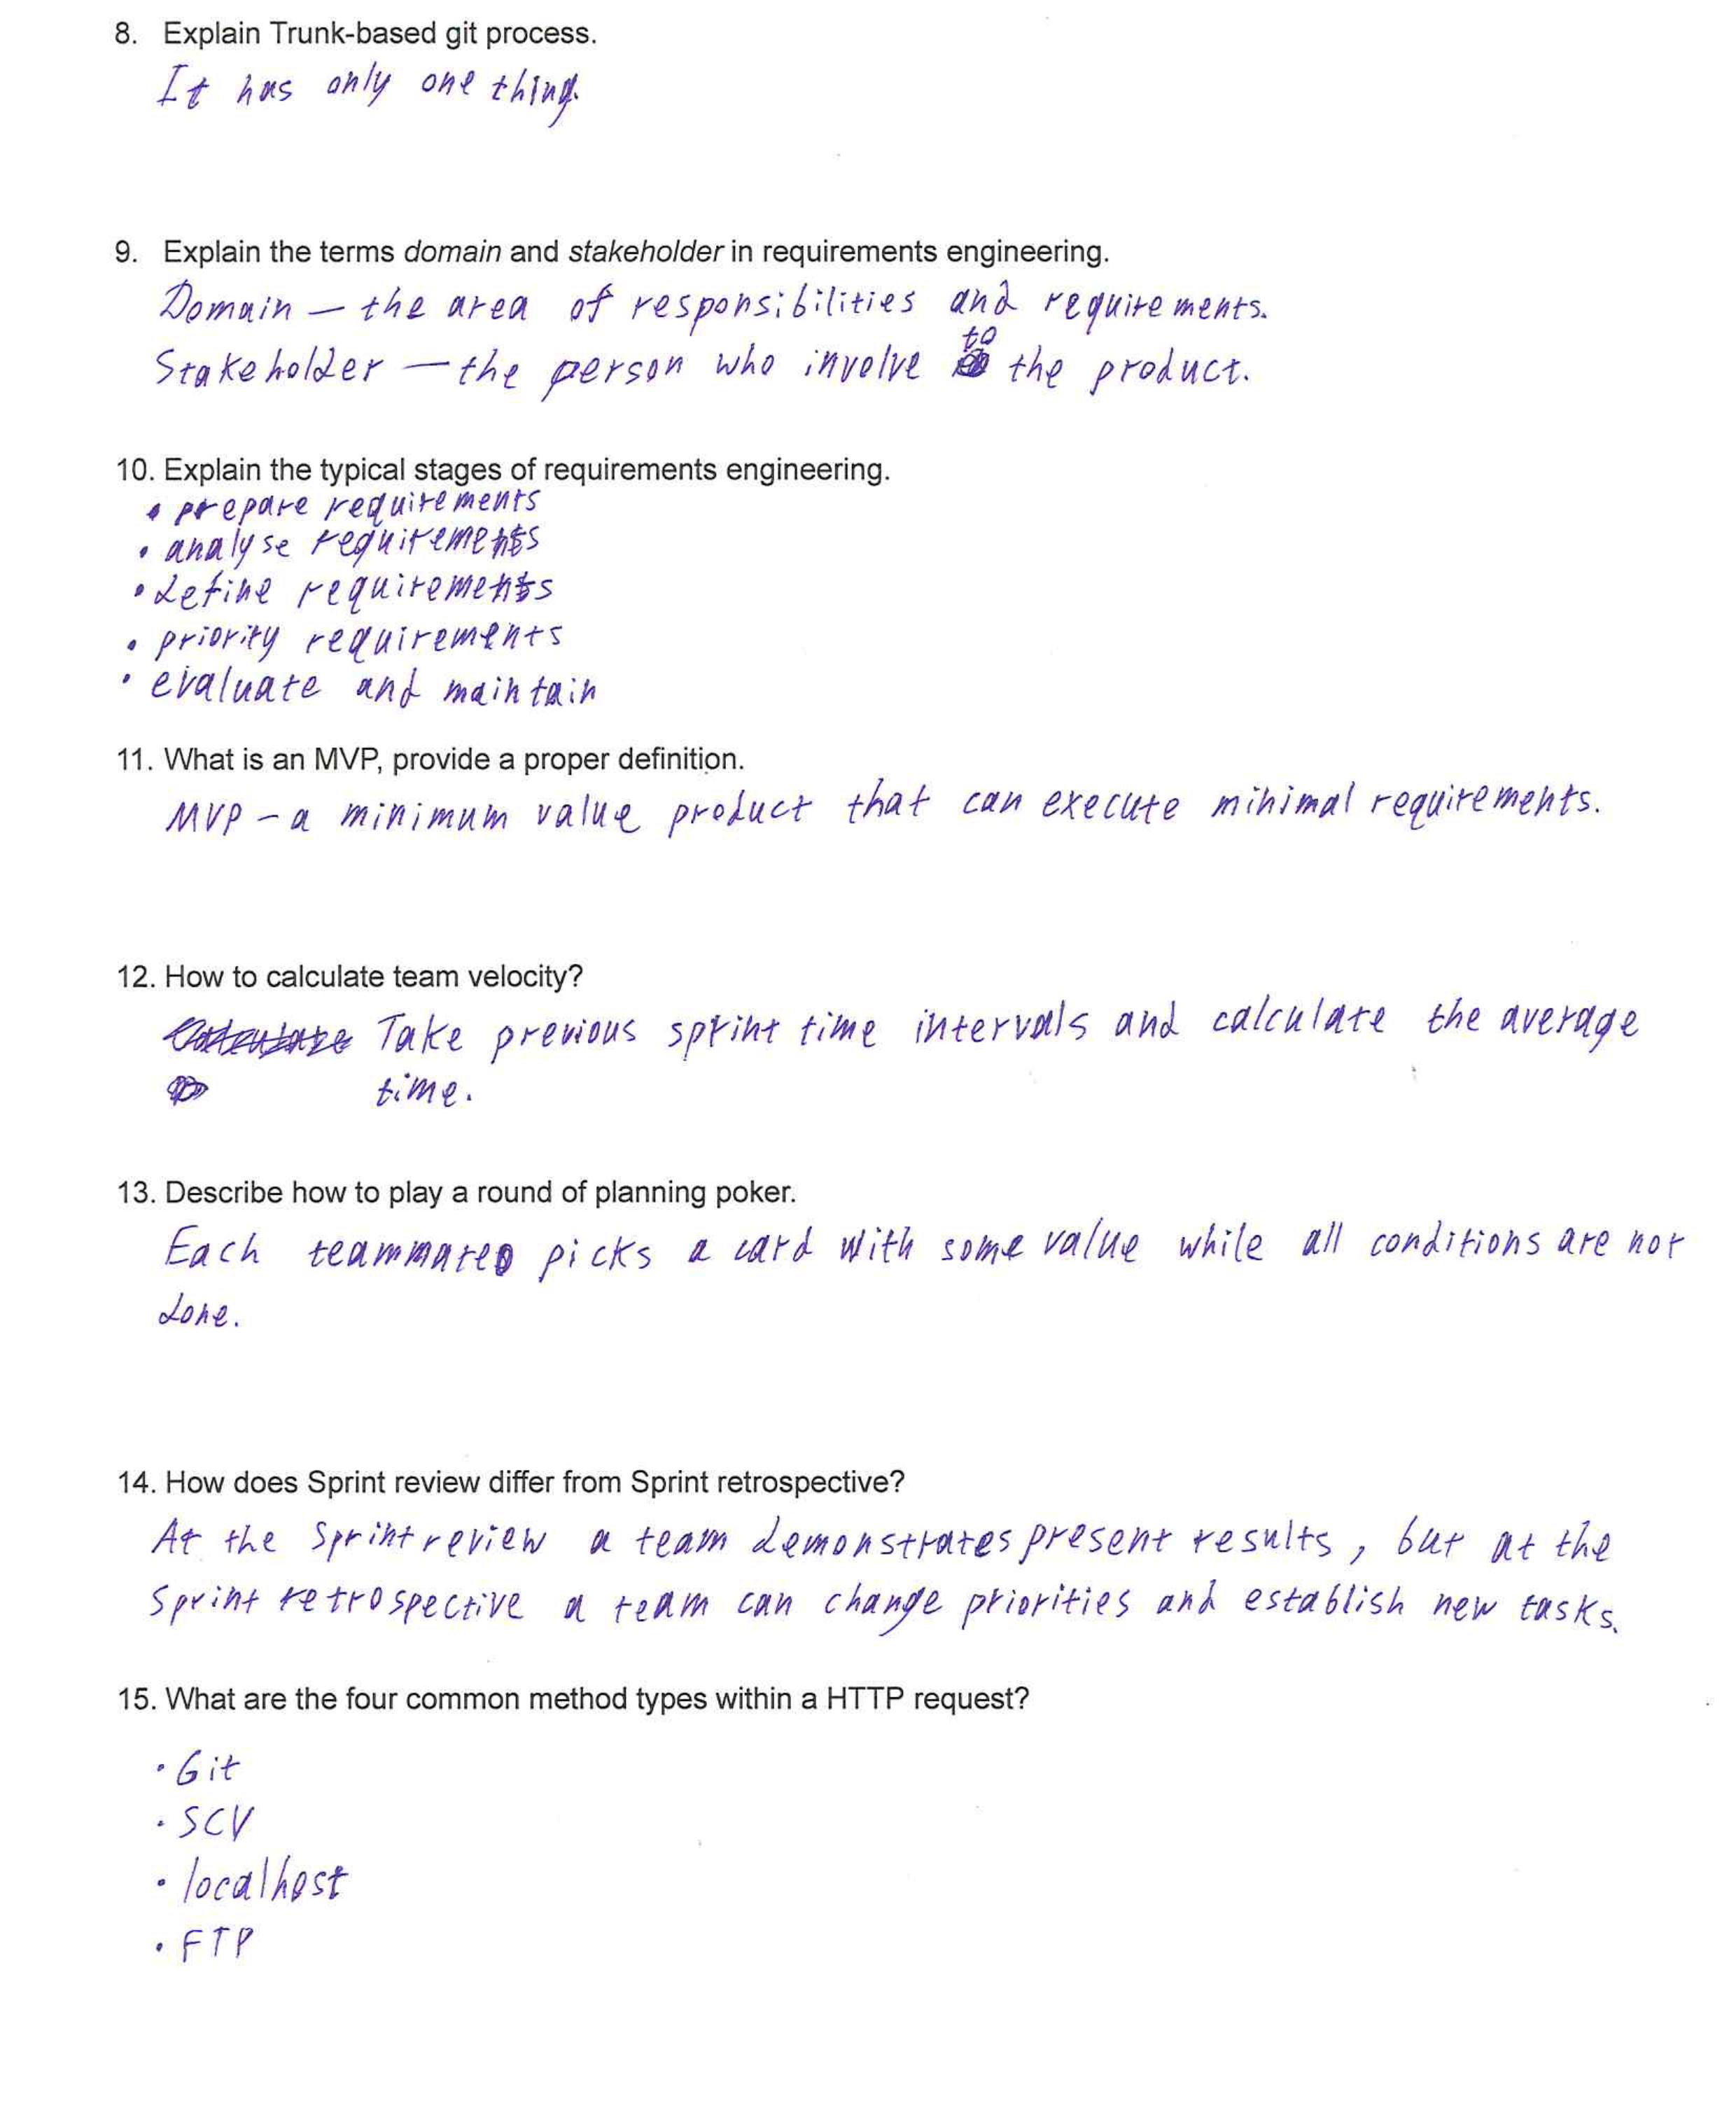 8. Explain Trunk-based git process.
It has only one thing.
9. Explain the terms domain and stakeholder in requirements engineering.
Domain – the area of responsibilities and requirements.
Stakeholder – the person who involve to the product.
10. Explain the typical stages of requirements engineering.
• prepare requirements
• analyse requirements
• define requirements
• priority requirements
• evaluate and maintain
11. What is an MVP, provide a proper definition.
MVP – a minimum value product that can execute minimal requirements.
12. How to calculate team velocity?
Calculate Take previous sprint time intervals and calculate the average
time.
13. Describe how to play a round of planning poker.
Each teammate picks a card with some value while all conditions are not
done.
14. How does Sprint review differ from Sprint retrospective?
At the Sprint review a team demonstrates present results, but at the
Sprint retrospective a team can change priorities and establish new tasks.
15. What are the four common method types within a HTTP request?
• Git
• SCV
• localhost
• FTP